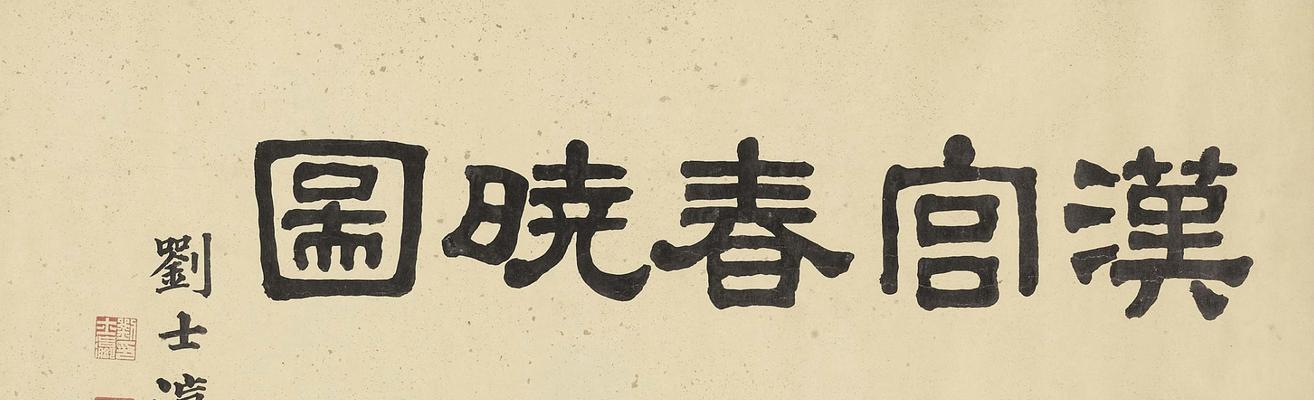 漢宮春暁圖
劉士